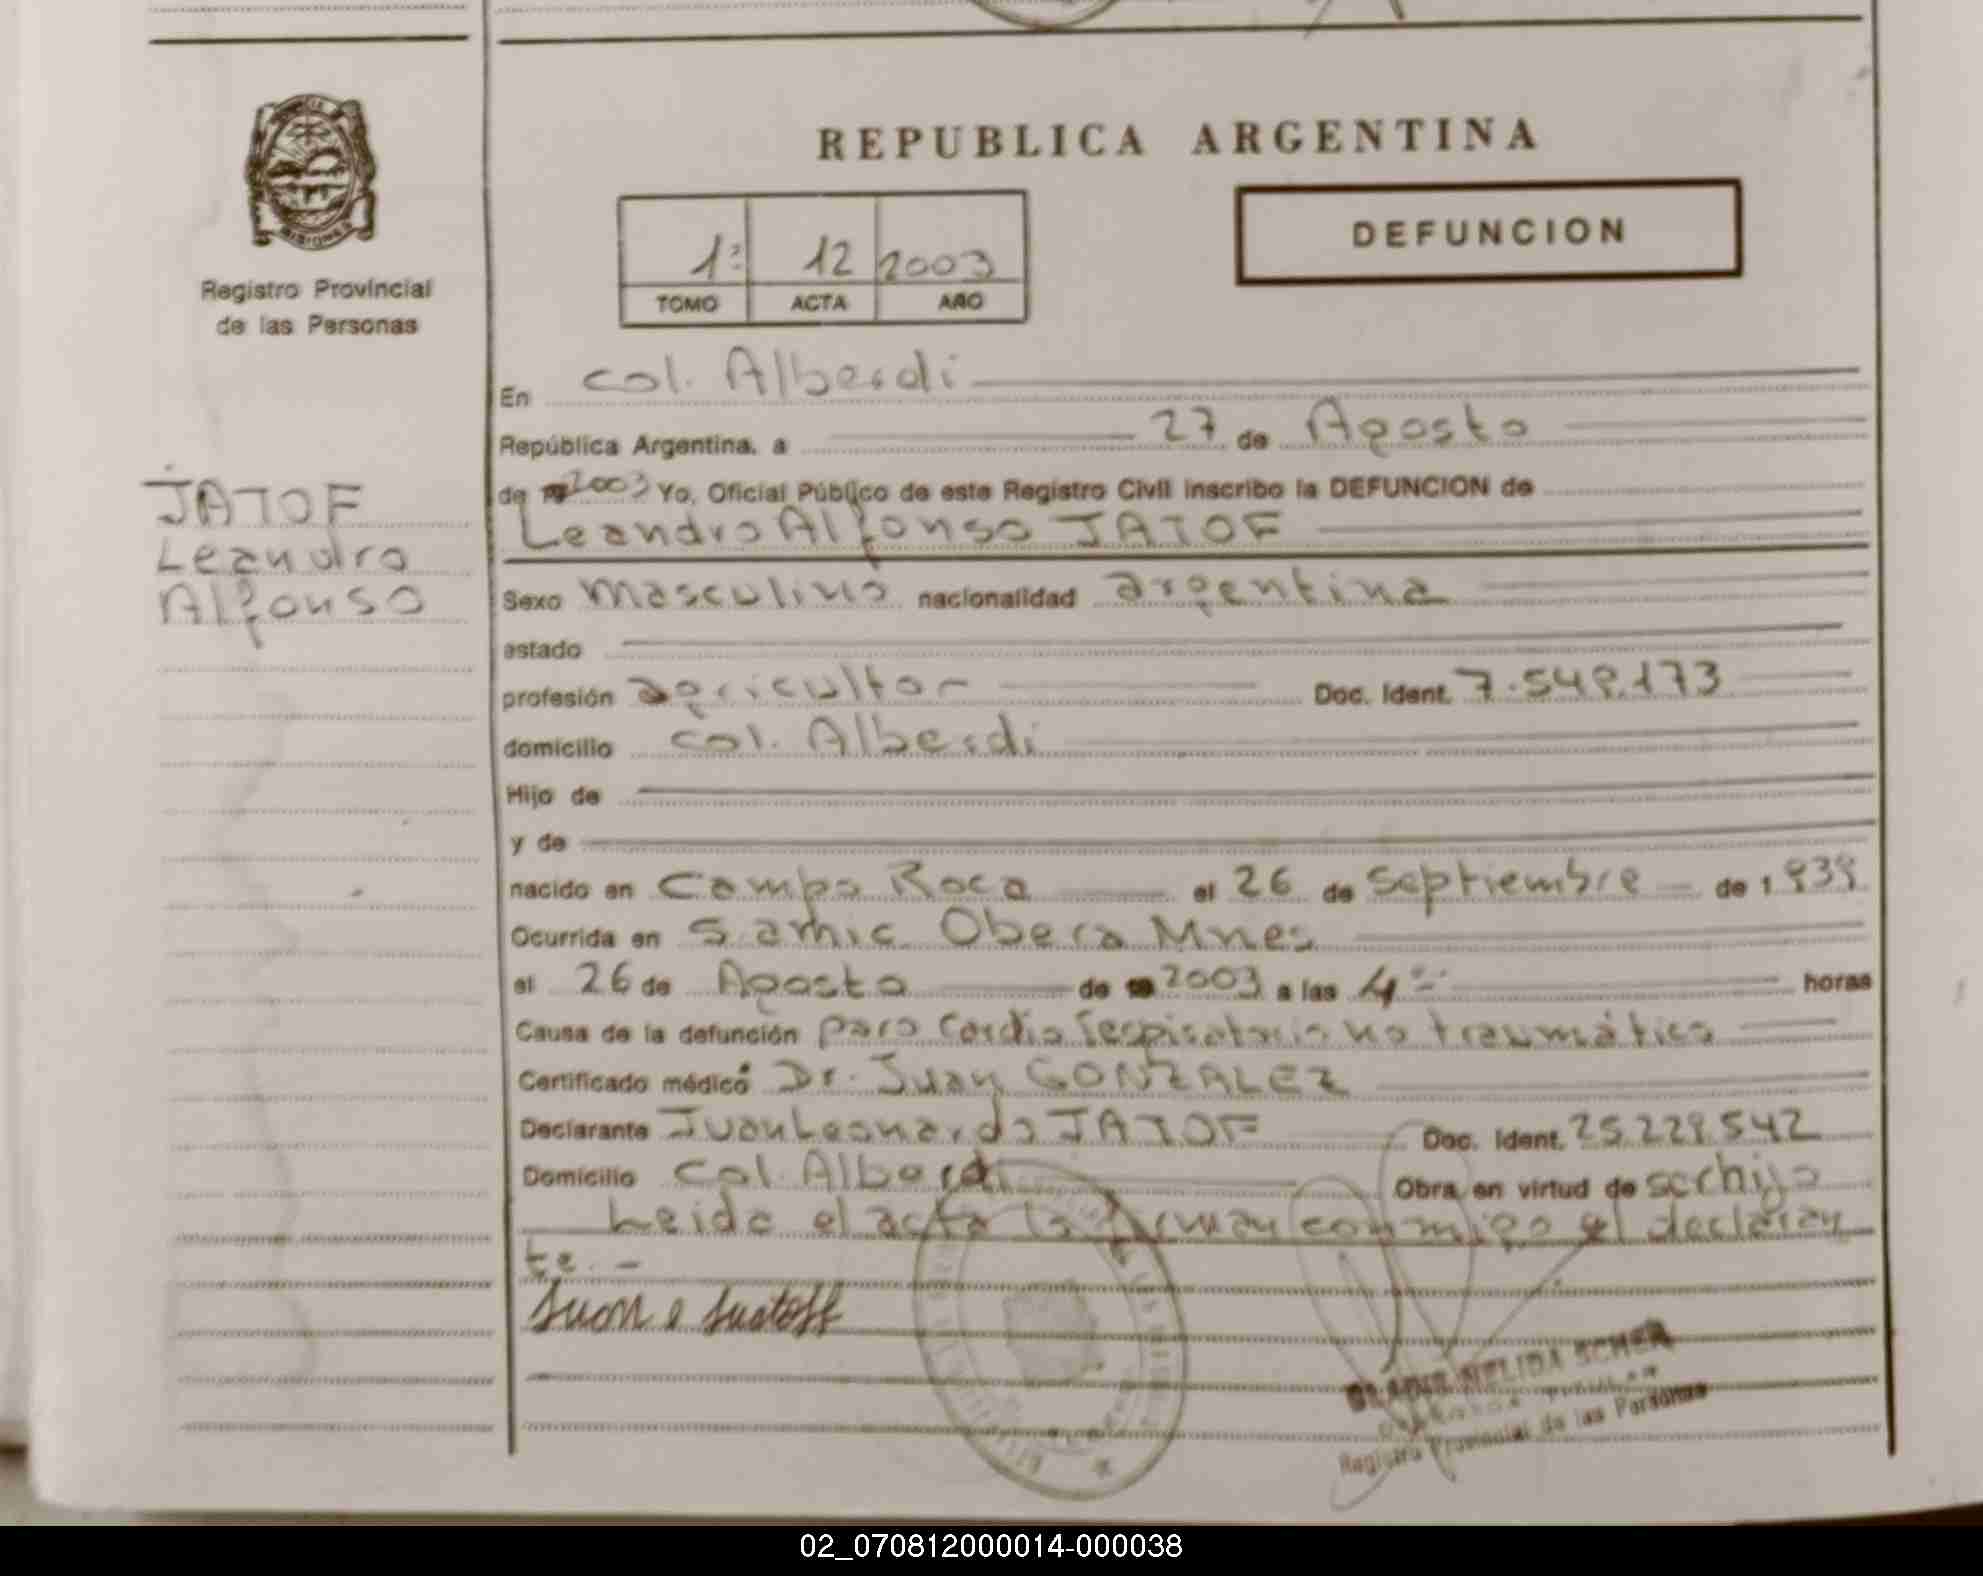 REPUBLICA ARGENTINA
MISIONES
Registro Provincial
de las Personas
1º 12 2003
TOMO ACTA AÑO
DEFUNCION
En col. Alberdi
República Argentina, a 27 de Agosto
de 2003 Yo, Oficial Público de este Registro Civil inscribo la DEFUNCION de
Leandro Alfonso JATOF
JATOF
Leandro
Alfonso
Sexo masculino nacionalidad argentina
estado
profesión agricultor Doc. Ident. 7.549.173
domicilio col. Alberdi
Hijo de
y de
nacido en Campo Roca el 26 de septiembre de 1939
Ocurrida en Samic Obera Mnes
el 26 de Agosto de 2003 a las 4 horas
Causa de la defunción paro cardio respiratorio no traumático
Certificado médico Dr. Juan GONZALEZ
Declarante Juan Leonardo JATOF Doc. Ident. 25.229.542
Domicilio Col. Alberdi Obra en virtud de ser hijo
Leida el acta la firman conmigo el declaran
te. -
NELIDA SCHER
Registro Provincial de las Personas
02_070812000014-000038